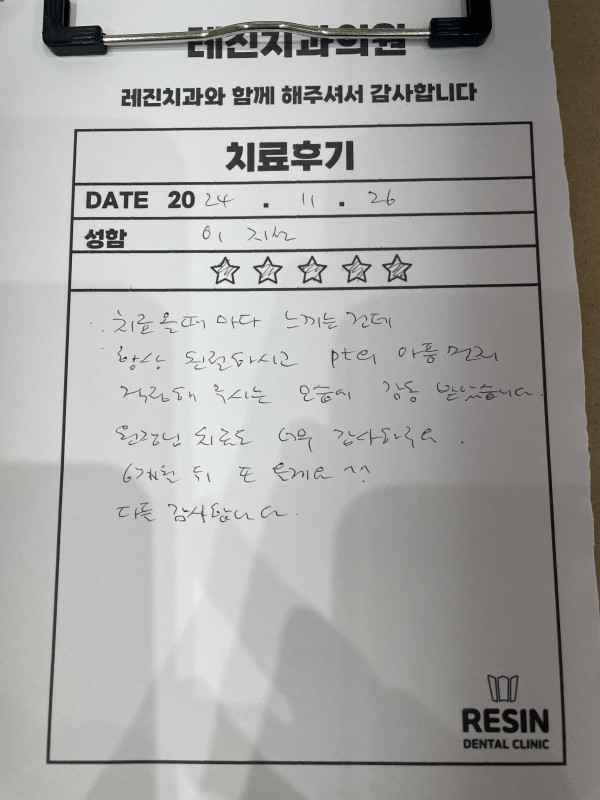 레진치과의원
레진치과와 함께 해주셔서 감사합니다
치료후기
DATE 20 24 . 11 . 26
성함 이
치료 올때 마다 느끼는 건데
항상 친절하시고 pt의 아픔 먼저
걱정해 주시는 모습에 감동 받았습니다.
원장님 치료도 너무 감사하구요.
6개월 뒤 또 올게요 ^^
다들 감사합니다.
RESIN
DENTAL CLINIC